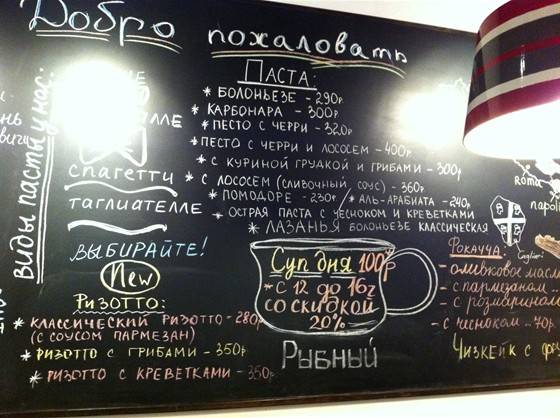 Добро пожаловать
Виды пасты у нас:
спагетти
тальятелле
таглиателле
выбирайте!
Паста:
* Болоньезе - 290р
* Карбонара - 300р
* Песто с черри - 320р
* Песто с черри и лососем - 400р
* с куриной грудкой и грибами - 300р
* с лососем (сливочный соус) - 360р
* Помодоре - 230р/ * Аль-Арабиата - 240р
* Острая паста с чесноком и креветками
* Лазанья Болоньезе классическая
New
Ризотто:
* классический ризотто - 280р
(с соусом пармезан)
* ризотто с грибами - 350р
* ризотто с креветками - 350р
Суп дня 100р
- с 12 до 16ч
со скидкой
20%
Рыбный
Рокачча:
- оливковое
- с пармезаном
- с розмарином
- с чесноком - 70р
Чизкейк с
Roma
Cagliari